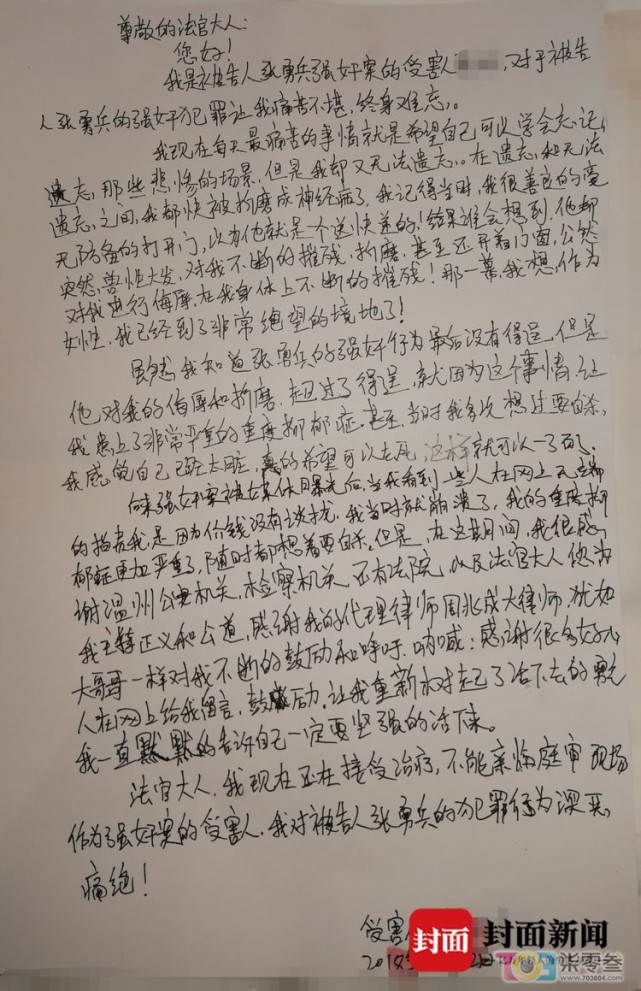 尊敬的法官大人:
您好!
我是被告人张勇兵强奸案的受害人 ,对于被告
人张勇兵的强奸犯罪让我痛苦不堪,终身难忘。
我现在每天最痛苦的事情就是希望自己可以学会忘记,
遗忘,那些悲惨的场景,但是我却又无法遗忘。在遗忘和无法
遗忘之间,我都快被折磨成神经病了,我记得当时,我很善良的毫
无防备的打开门,以为他就是一个送快递的!结果谁会想到,他却
突然兽性大发,对我不断的摧残,折磨,甚至还开着门窗,公然
对我进行侮辱,在我身体上不断的摧残!那一幕,我想,作为
女性,我已经到了非常绝望的境地了!
虽然我知道张勇兵的强奸行为最后没有得逞,但是
他对我的侮辱和折磨,超过了得逞,就因为这个事情,让
我患上了非常严重的重度抑郁症,甚至,当时我多次想过要自杀,
我感觉自己已经太脏,真的希望可以去死,这样就可以一了百了。
强奸案被媒体曝光后,当我看到一些人在网上无端
的指责我,是因为价钱没有谈拢,我当时就崩溃了,我的重度抑
郁症更加严重了,随时都想着要自杀。但是,在这期间,我很感
谢温州公安机关,检察机关,还有法院,以及法官大人您为
我主持正义和公道,感谢我的代理律师周兆成大律师,犹如
大哥哥一样对我不断的鼓励和呼吁,呐喊;感谢很多好心
人在网上给我留言,鼓励,让我重新树起了活下去的勇气
我一直默默的告诉自己一定要坚强的活下来。
法官大人,我现在还在接受治疗,不能亲临庭审现场
作为强奸案的受害人,我对被告人张勇兵的犯罪行为深恶
痛绝!
受害
封面 封面新闻
2018
柒零叁
www.703804.com